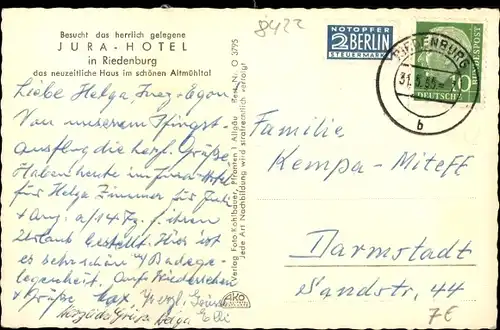 Besucht das herrlich gelegene
JURA-HOTEL
in Riedenburg
das neuzeitliche Haus im schönen Altmühltal
8422
NOTOPFER
2 BERLIN
STEUERMARKE
RIEDENBURG
b
10
DEUTSCHE BUNDESPOST
Liebe Helga, Inez, Egon
Von unserem Pfingst-
ausflug die herzl. Grüße.
Haben heute im Jura-Hotel
für Helga Zimmer für Juli
+ Aug. a/14 Tg. f. ihren
Urlaub bestellt. Hier ist
es sehr schön m/ Badege-
legenheit. Auf Wiedersehen
+ Grüße
Elli
Verlag Foto Kohlbauer, Pfronten i. Allgäu Best. N. O 3795
Jede Art Nachbildung wird strafrechtlich verfolgt
AKO
Familie
Kempa-Miteff
Darmstadt
Sandstr. 44
7€